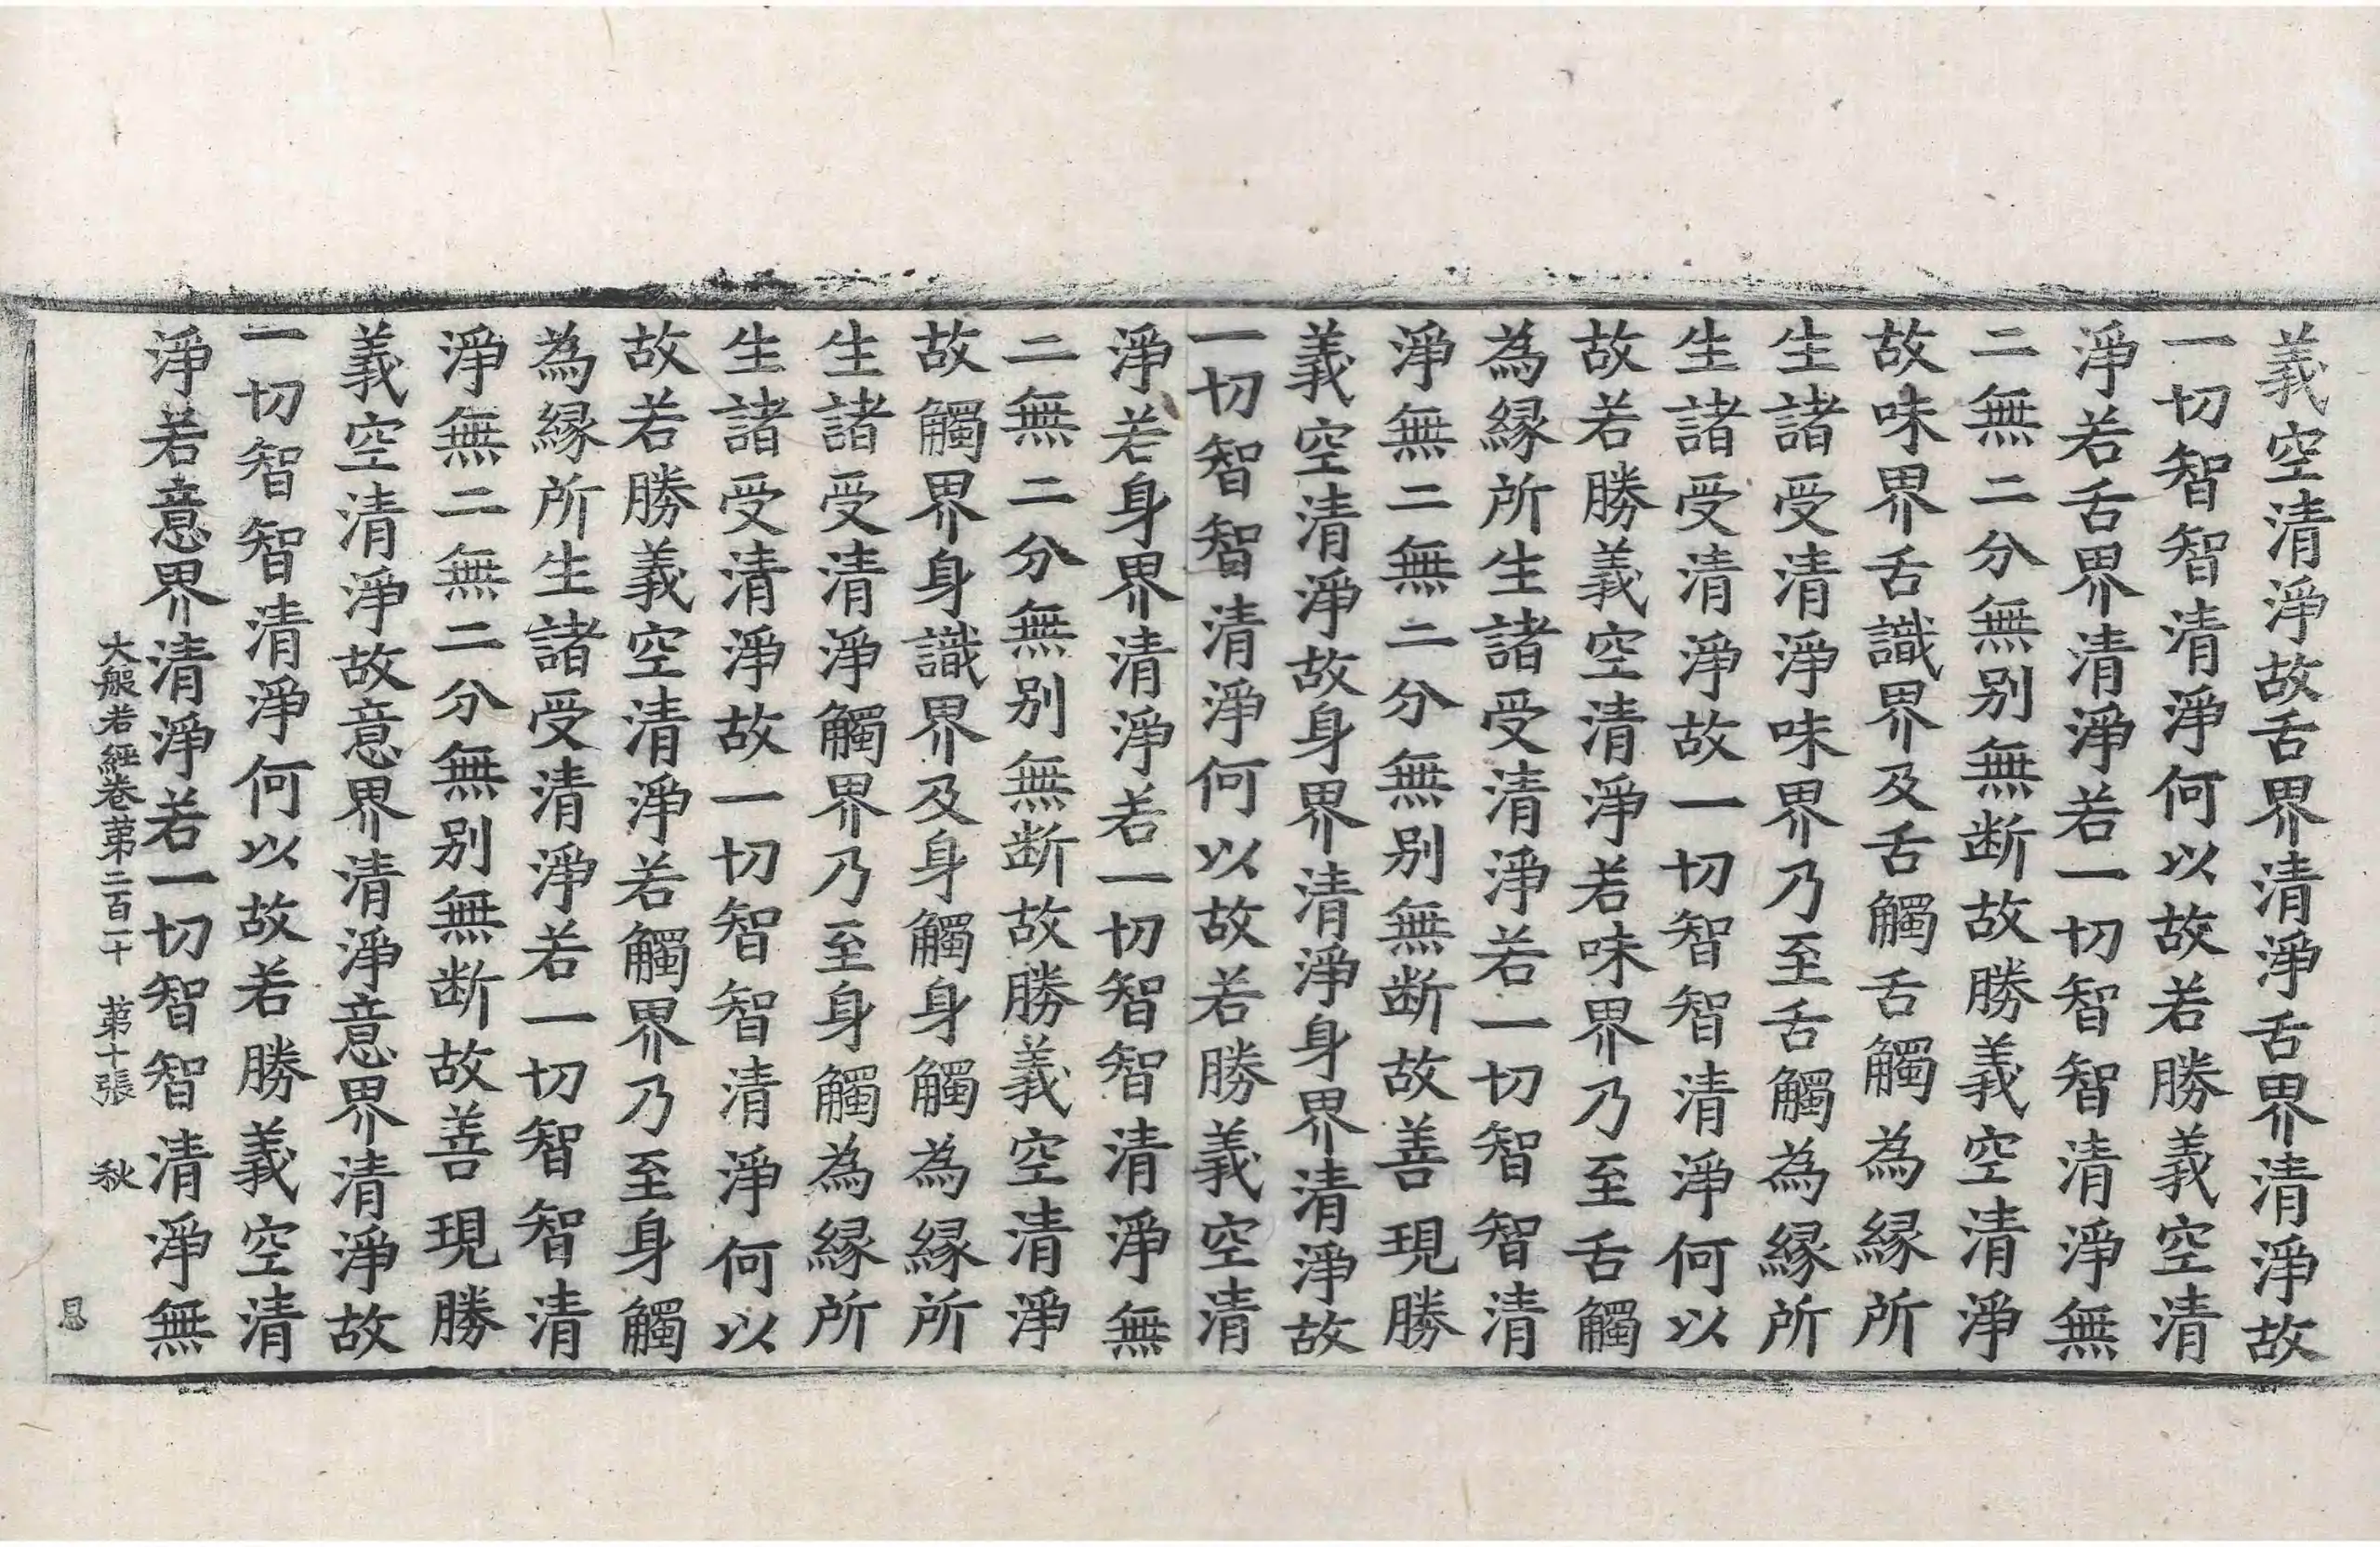 義空清淨故舌界清淨舌界清淨故
一切智智清淨何以故若勝義空清
淨若舌界清淨若一切智智清淨無
二無二分無別無断故勝義空清淨
故味界舌識界及舌觸舌觸為縁所
生諸受清淨味界乃至舌觸為縁所
生諸受清淨故一切智智清淨何以
故若勝義空清淨若味界乃至舌觸
為縁所生諸受清淨若一切智智清
淨無二無二分無別無断故善現勝
義空清淨故身界清淨身界清淨故
一切智智清淨何以故若勝義空清
淨若身界清淨若一切智智清淨無
二無二分無別無断故勝義空清淨
故觸界身識界及身觸身觸為縁所
生諸受清淨觸界乃至身觸為縁所
生諸受清淨故一切智智清淨何以
故若勝義空清淨若觸界乃至身觸
為縁所生諸受清淨若一切智智清
淨無二無二分無別無断故善現勝
義空清淨故意界清淨意界清淨故
一切智智清淨何以故若勝義空清
淨若意界清淨若一切智智清淨無
大般若經卷苐二百一十 苐十張 秋